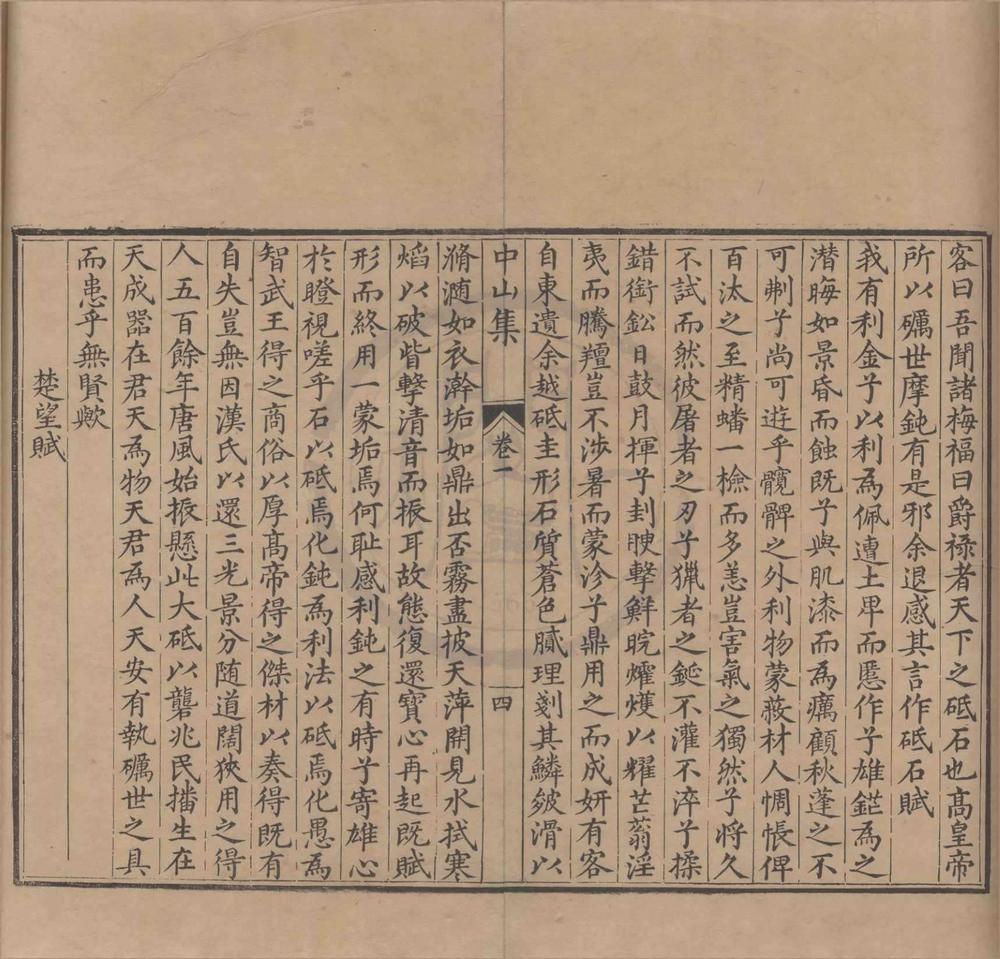 客曰吾聞諸梅福曰爵祿者天下之砥石也高皇帝
所以礪世摩鈍有是邪余退感其言作砥石賦
我有利金兮以利為佩遭土卑而慝作兮雄鋩為之
潛晦如景昏而蝕既兮與肌漆而為癘顧秋蓬之不
可刜兮尚可遊乎髖髀之外利物蒙蔽材人惆悵俾
百汰之至精蟠一檢而多恙豈害氣之獨然兮將久
不試而然彼屠者之刃兮獵者之鋋不灌不淬兮揉
錯銜鈆日鼓月揮兮刲腴擊鮮晥爠爡以耀芒蓊淫
夷而騰羶豈不涉暑而蒙沴兮鼎用之而成妍有客
自東遺余越砥圭形石質蒼色膩理剗其鱗皴滑以
中山集 卷一 四
滫瀡如衣澣垢如鼎出否霧盡披天萍開見水拭寒
熖以破眥擊清音而振耳故態復還寶心再起既賦
形而終用一蒙垢焉何恥感利鈍之有時兮寄雄心
於瞪視嗟乎石以砥焉化鈍為利法以砥焉化愚為
智武王得之商俗以厚高帝得之傑材以奏得既有
自失豈無因漢氏以還三光景分随道闊狹用之得
人五百餘年唐風始振懸此大砥以礱兆民播生在
天成器在君天為物天君為人天安有執礪世之具
而患乎無賢歟
楚望賦